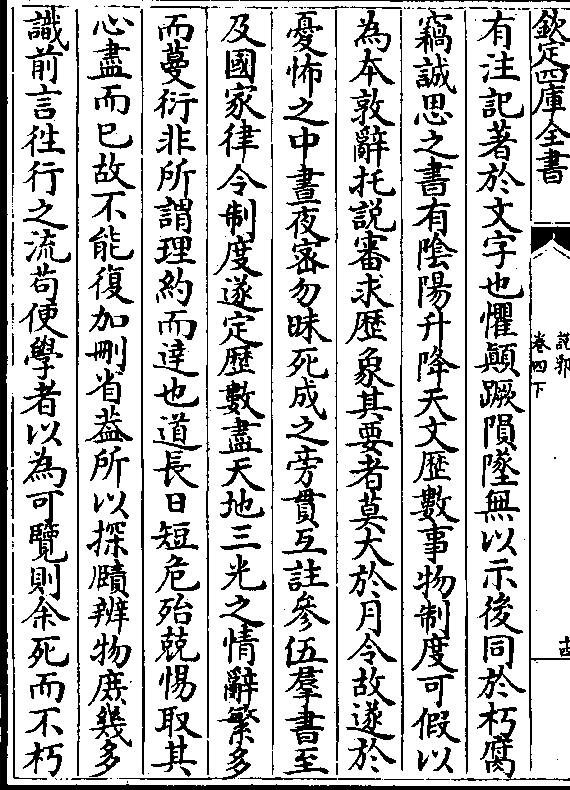 欽定四庫全書
說郛
卷四下
十四
有注記著於文字也懼顛蹶隕墜無以示後同於朽腐
竊誠思之書有陰陽升降天文歴數事物制度可假以
為本敦辭托説審求歴象其要者莫大於月令故遂於
憂怖之中晝夜密勿昧死成之旁貫互註參伍羣書至
及國家律令制度遂定歴數盡天地三光之情辭繁多
而蔓衍非所謂理約而達也道長日短危殆兢惕取其
心盡而已故不能復加刪省葢所以探賾辨物庶幾多
識前言徃行之流苟便學者以為可覽則余死而不朽